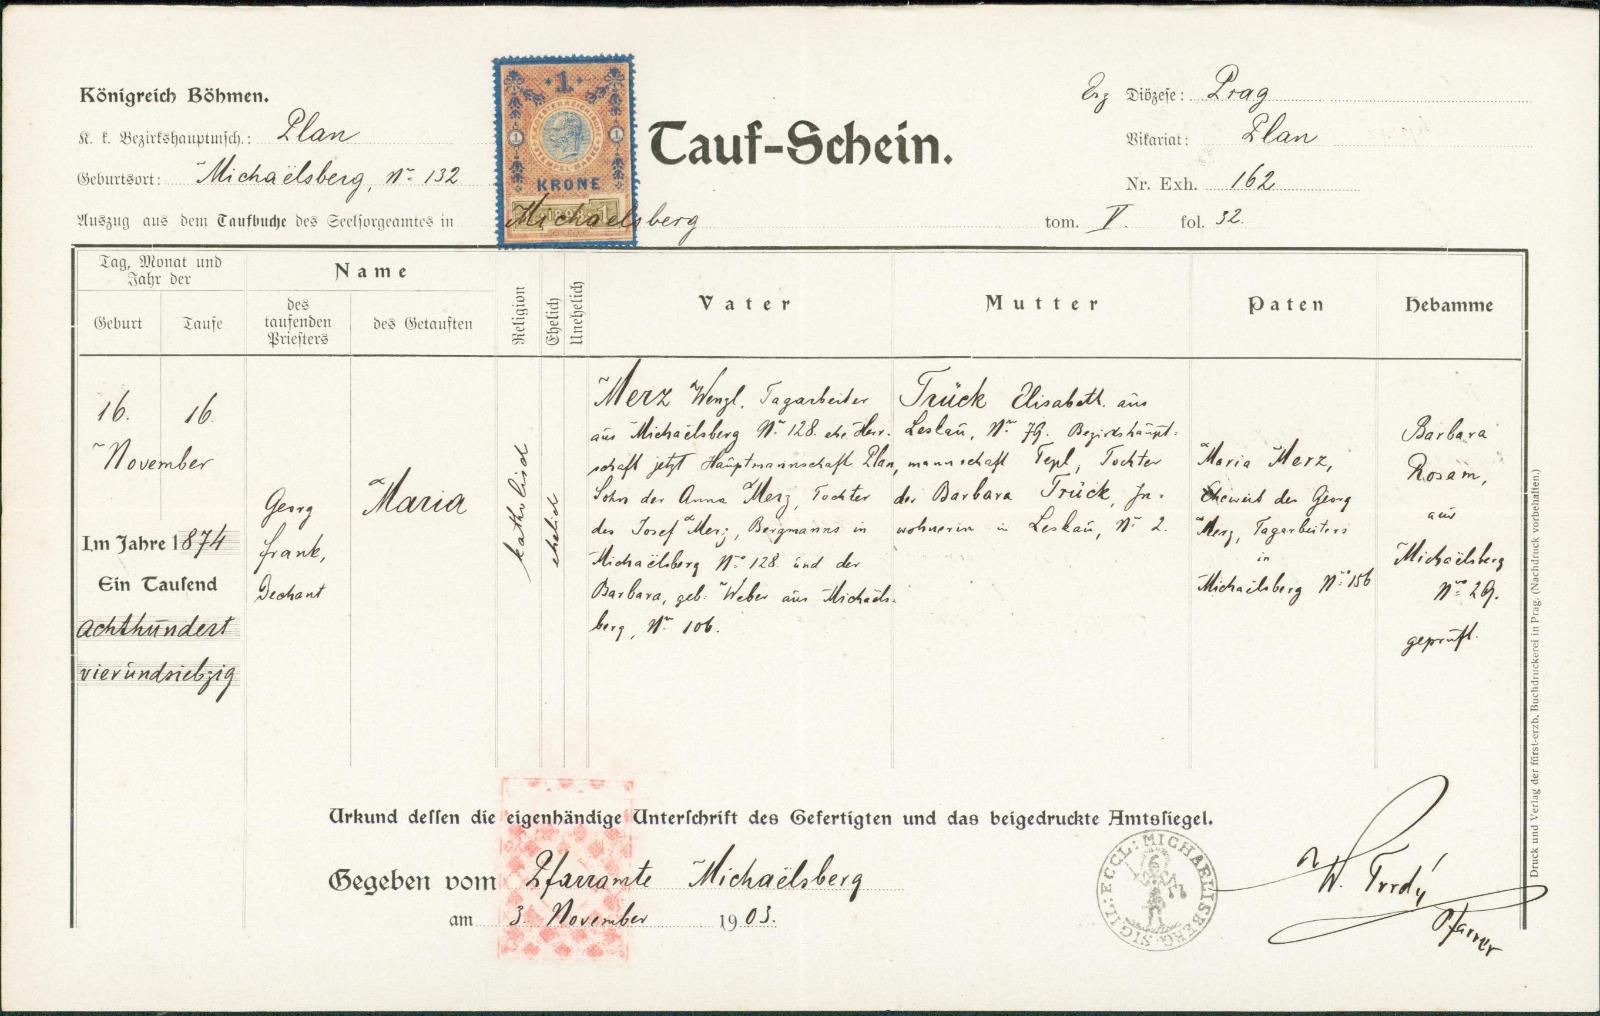 Königreich Böhmen.
K. k. Bezirkshauptmsch.: Plan
Geburtsort: Michaëlsberg, No 132
Auszug aus dem Taufbuche des Seelsorgeamtes in Michaëlsberg
1
1 1
KRONE
1898
Tauf-Schein.
Erz Diözese: Prag
Vikariat: Plan
Nr. Exh. 162
tom. V. fol. 32.
Tag, Monat und Jahr der
Geburt
Taufe
Name
des taufenden Priesters
des Getauften
Religion
Ehelich
Unehelich
Vater
Mutter
Paten
Hebamme
16. 16.
November
Im Jahre 1874
Ein Tausend
achthundert
vierundsiebzig
Georg
Frank,
Dechant
Maria
katholisch
ehelich
Merz Wenzl, Tagarbeiter
aus Michaëlsberg No 128. ehe Herr-
schaft jetzt Hauptmannschaft Plan,
Sohn der Anna Merz, Tochter
des Josef Merz, Bergmanns in
Michaëlsberg No 128 und der
Barbara, geb. Weber aus Michaëls-
berg, No 106.
Trück Elisabeth aus
Leskau, No 79. Bezirkshaupt-
mannschaft Tepl, Tochter
der Barbara Trück, In-
wohnerin in Leskau, No 2.
Maria Merz,
Eheweib des Georg
Merz, Tagarbeiters
in
Michaëlsberg No 156
Barbara
Rosam,
aus
Michaëlsberg
No 29.
geprüft.
Urkund dessen die eigenhändige Unterschrift des Gefertigten und das beigedruckte Amtssiegel.
Gegeben vom Pfarramte Michaëlsberg
am 3. November 1903.
SIGIL: ECCL: MICHAELISBERG
W. Tvrdý
Pfarrer
Druck und Verlag der fürst-erzb. Buchdruckerei in Prag. (Nachdruck vorbehalten.)